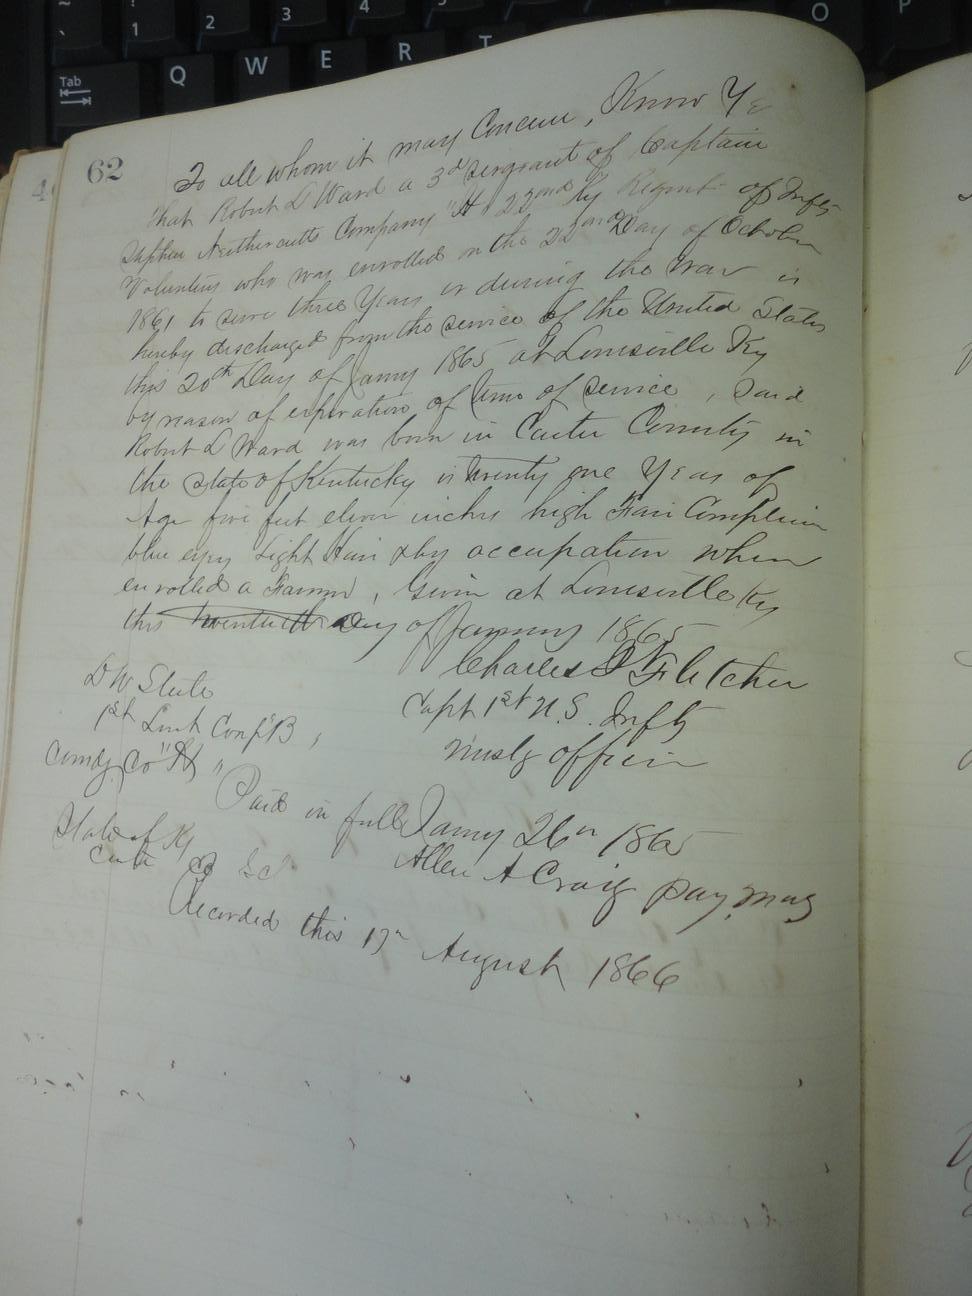 ~
`
1
2
3
4
5
O
P
Tab
Q
W
E
R
T
62
To all whom it may Concern, Know Ye
that Robert L Ward a 3d Sergeant of Captain
Stephen Nethercutts Company "H" 22nd Ky Regmt of Infty
Volunteers who was enrolled on the 22nd Day of October
1861 to serve three Years or during the War is
hereby discharged from the service of the United States
this 20th Day of Jamy 1865 at Louisville Ky
by reason of expiration of time of service, Said
Robert L Ward was born in Carter County in
the state of Kentucky is twenty one Years of
Age five feet eleven inches high Fair Complexion
blue eyes Light Hair & by occupation when
enrolled a Farmer, Given at Louisville Ky
this twentieth Day of January 1865
Charles Fletcher
D W
Capt 1st U.S. Infty
1st Lieut Comp "B",
Mustg officer
Comdg Co "H"
Paid in full Jamy 26th 1865
State of Ky
Allen A Craig pay.mas
Sct
Recorded this 17th August 1866